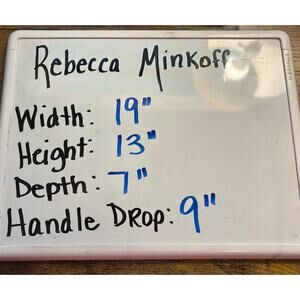 Rebecca Minkoff
Width: 19"
Height: 13"
Depth: 7"
Handle Drop: 9"